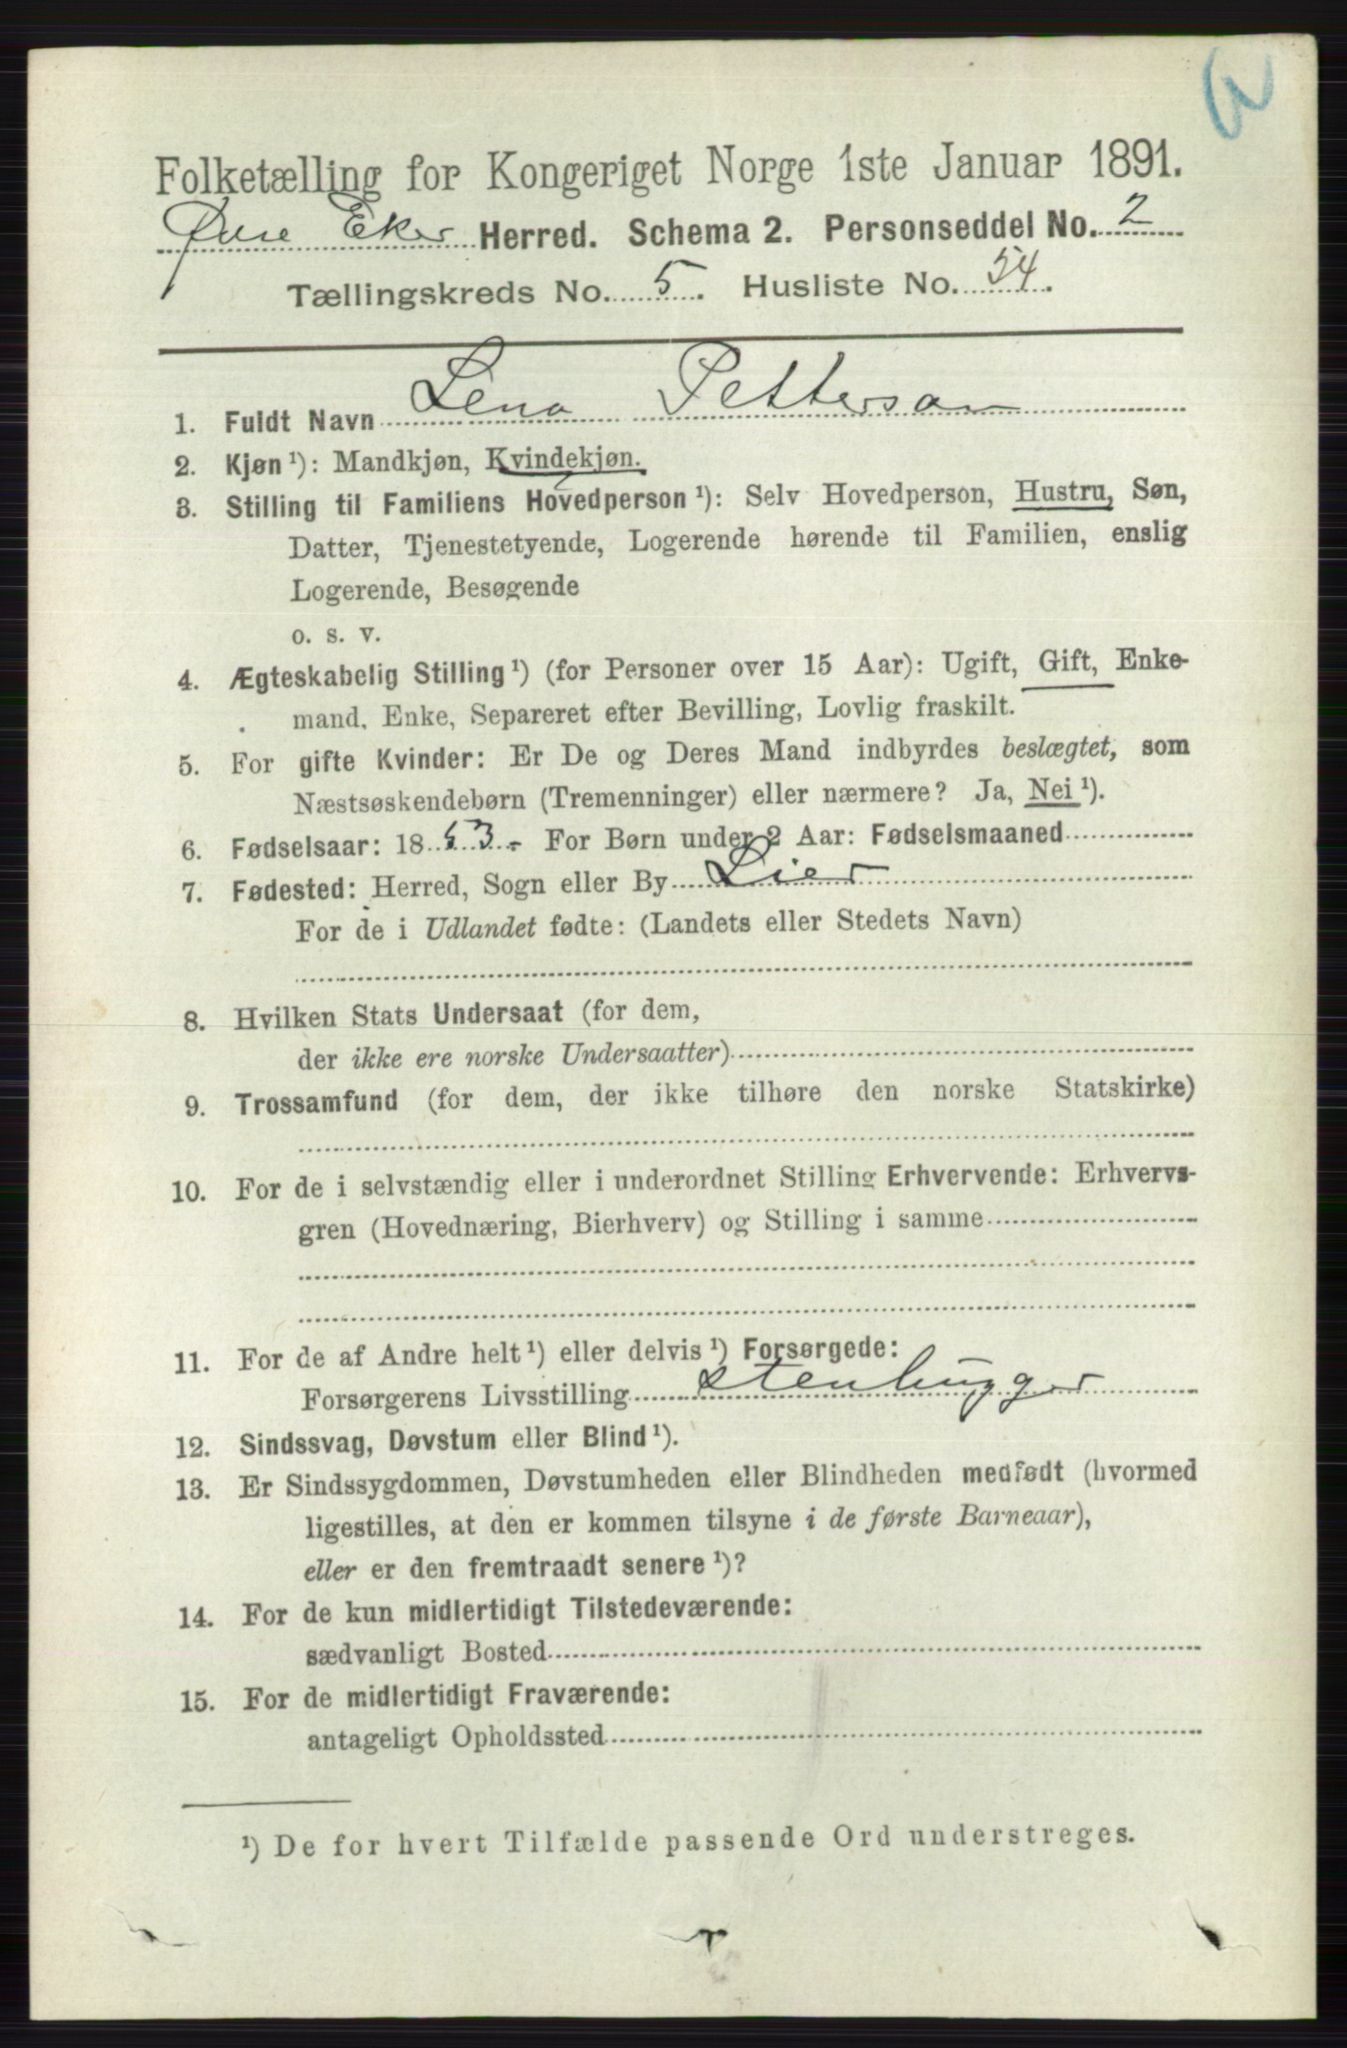 Folketælling for Kongeriget Norge 1ste Januar 1891.
Øvre Eker Herred. Schema 2. Personseddel No. 2
Tællingskreds No. 5. Husliste No. 54.
1. Fuldt Navn Lena Petterson
2. Kjøn ¹): Mandkjøn, Kvindekjøn.
3. Stilling til Familiens Hovedperson ¹): Selv Hovedperson, Hustru, Søn,
Datter, Tjenestetyende, Logerende hørende til Familien, enslig
Logerende, Besøgende
o. s. v.
4. Ægteskabelig Stilling ¹) (for Personer over 15 Aar): Ugift, Gift, Enke-
mand, Enke, Separeret efter Bevilling, Lovlig fraskilt.
5. For gifte Kvinder: Er De og Deres Mand indbyrdes beslægtet, som
Næstsøskendebørn (Tremenninger) eller nærmere? Ja, Nei ¹).
6. Fødselsaar: 1853. For Børn under 2 Aar: Fødselsmaaned
7. Fødested: Herred, Sogn eller By Lier
For de i Udlandet fødte: (Landets eller Stedets Navn)
8. Hvilken Stats Undersaat (for dem,
der ikke ere norske Undersaatter)
9. Trossamfund (for dem, der ikke tilhøre den norske Statskirke)
10. For de i selvstændig eller i underordnet Stilling Erhvervende: Erhvervs-
gren (Hovednæring, Bierhverv) og Stilling i samme
11. For de af Andre helt ¹) eller delvis ¹) Forsørgede:
Forsørgerens Livsstilling Stenhugger
12. Sindssvag, Døvstum eller Blind ¹).
13. Er Sindssygdommen, Døvstumheden eller Blindheden medfødt (hvormed
ligestilles, at den er kommen tilsyne i de første Barneaar),
eller er den fremtraadt senere ¹)?
14. For de kun midlertidigt Tilstedeværende:
sædvanligt Bosted
15. For de midlertidigt Fraværende:
antageligt Opholdssted
¹) De for hvert Tilfælde passende Ord understreges.